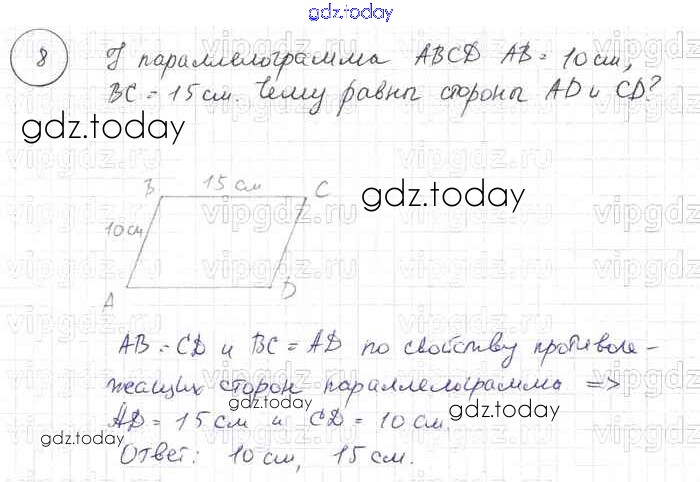 gdz.today
8 У параллелограмма ABCD AB = 10 см,
BC = 15 см. Чему равны стороны AD и CD?
gdz.today
B 15 см C
gdz.today
10 см
A D
AB = CD и BC = AD по свойству противоле-
жащих сторон параллелограмма =>
gdz.today
AD = 15 см и CD = 10 см.
gdz.today
gdz.today
Ответ: 10 см, 15 см.